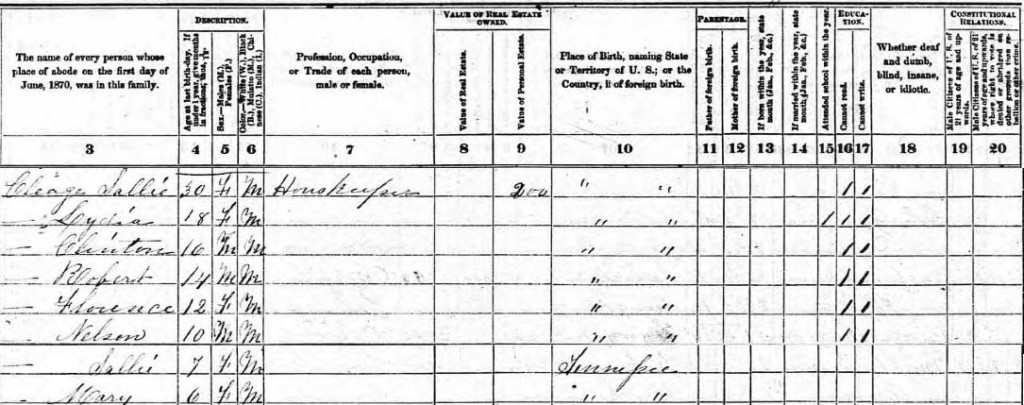 DESCRIPTION. VALUE OF REAL ESTATE OWNED. PARENTAGE. EDUCATION. CONSTITUTIONAL RELATIONS.
The name of every person whose place of abode on the first day of June, 1870, was in this family.
Age at last birth-day. If under 1 year, give months in fractions, thus,
Sex.—Males (M.), Females (F.)
Color.—White (W.), Black (B.), Mulatto (M.), Chinese (C.), Indian (I.)
Profession, Occupation, or Trade of each person, male or female.
Value of Real Estate.
Value of Personal Estate.
Place of Birth, naming State or Territory of U. S.; or the Country, if of foreign birth.
Father of foreign birth.
Mother of foreign birth.
If born within the year, state month (Jan., Feb., &c.)
If married within the year, state month (Jan., Feb., &c.)
Attended school within the year.
Cannot read.
Cannot write.
Whether deaf and dumb, blind, insane, or idiotic.
Male Citizens of U. S. of 21 years of age and upwards.
Male Citizens of U. S. of 21 years of age and upwards, whose right to vote is denied or abridged on other grounds than rebellion or other crime.
3 4 5 6 7 8 9 10 11 12 13 14 15 16 17 18 19 20
Cleage Sallie 30 F M Houskeeper 200 " " 1 1
— Lydia 18 F M " " 1 1 1
— Clinton 16 M M " " 1 1
— Robert 14 M M " " 1 1
— Florence 12 F M " " 1 1
— Nelson 10 M M " " 1 1
— Sallie 7 F M Tennessee
— Mary 6 F M " "